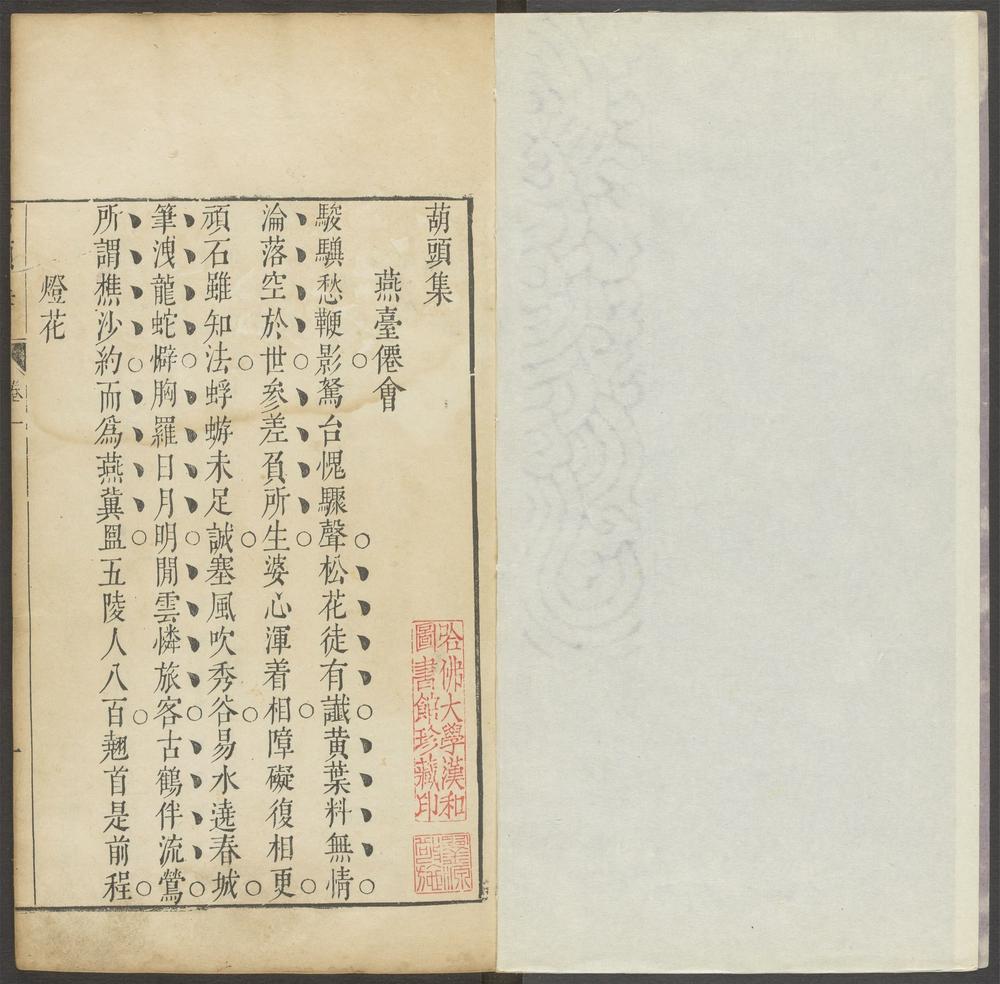 葫頭集
燕臺僊會
駿驥愁鞭影駑台愧驟聲松花徒有讖黄葉料無情
淪落空於世參差負所生婆心渾着相障礙復相更
頑石雖知法蜉蝣未足誠塞風吹秀谷易水遶春城
筆洩龍蛇僻胸羅日月明閒雲憐旅客古鶴伴流鶯
所謂樵沙約而爲燕冀盟五陵人八百翹首是前程
燈花
卷一
一
哈佛大學漢和
圖書館珍藏印